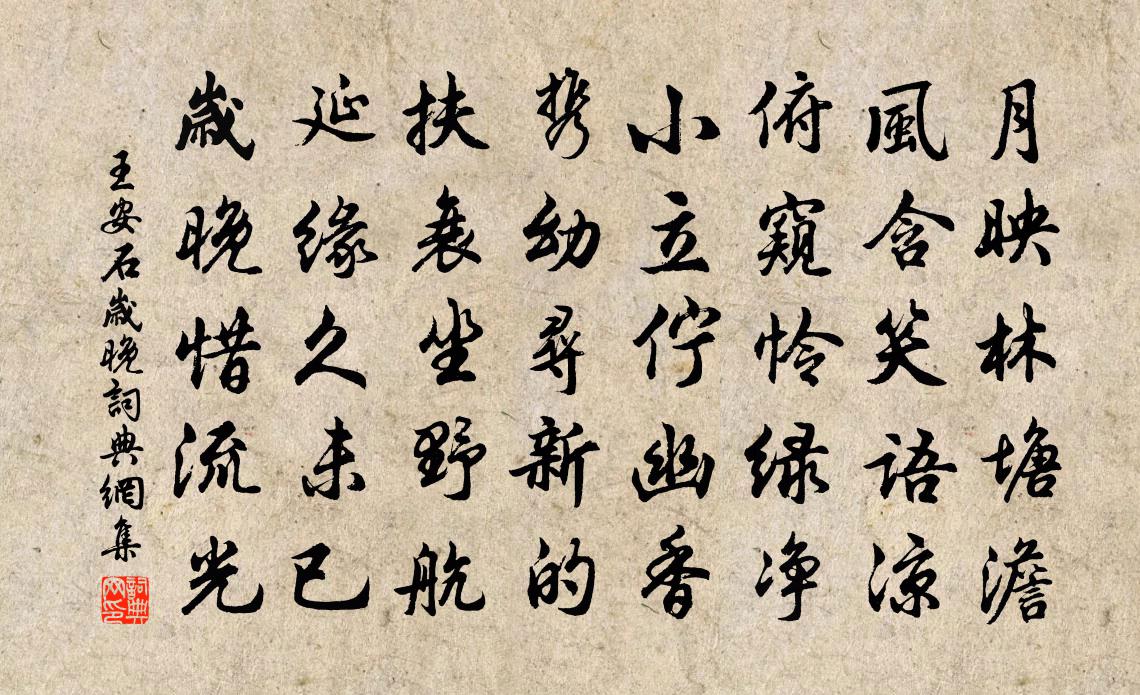 月映林塘澹
風含笑語涼
俯窺怜绿净
小立佇幽香
携幼尋新的
扶衰坐野航
延緣久未已
歲晚惜流光
王安石歲晚詞典網集
詞典网印